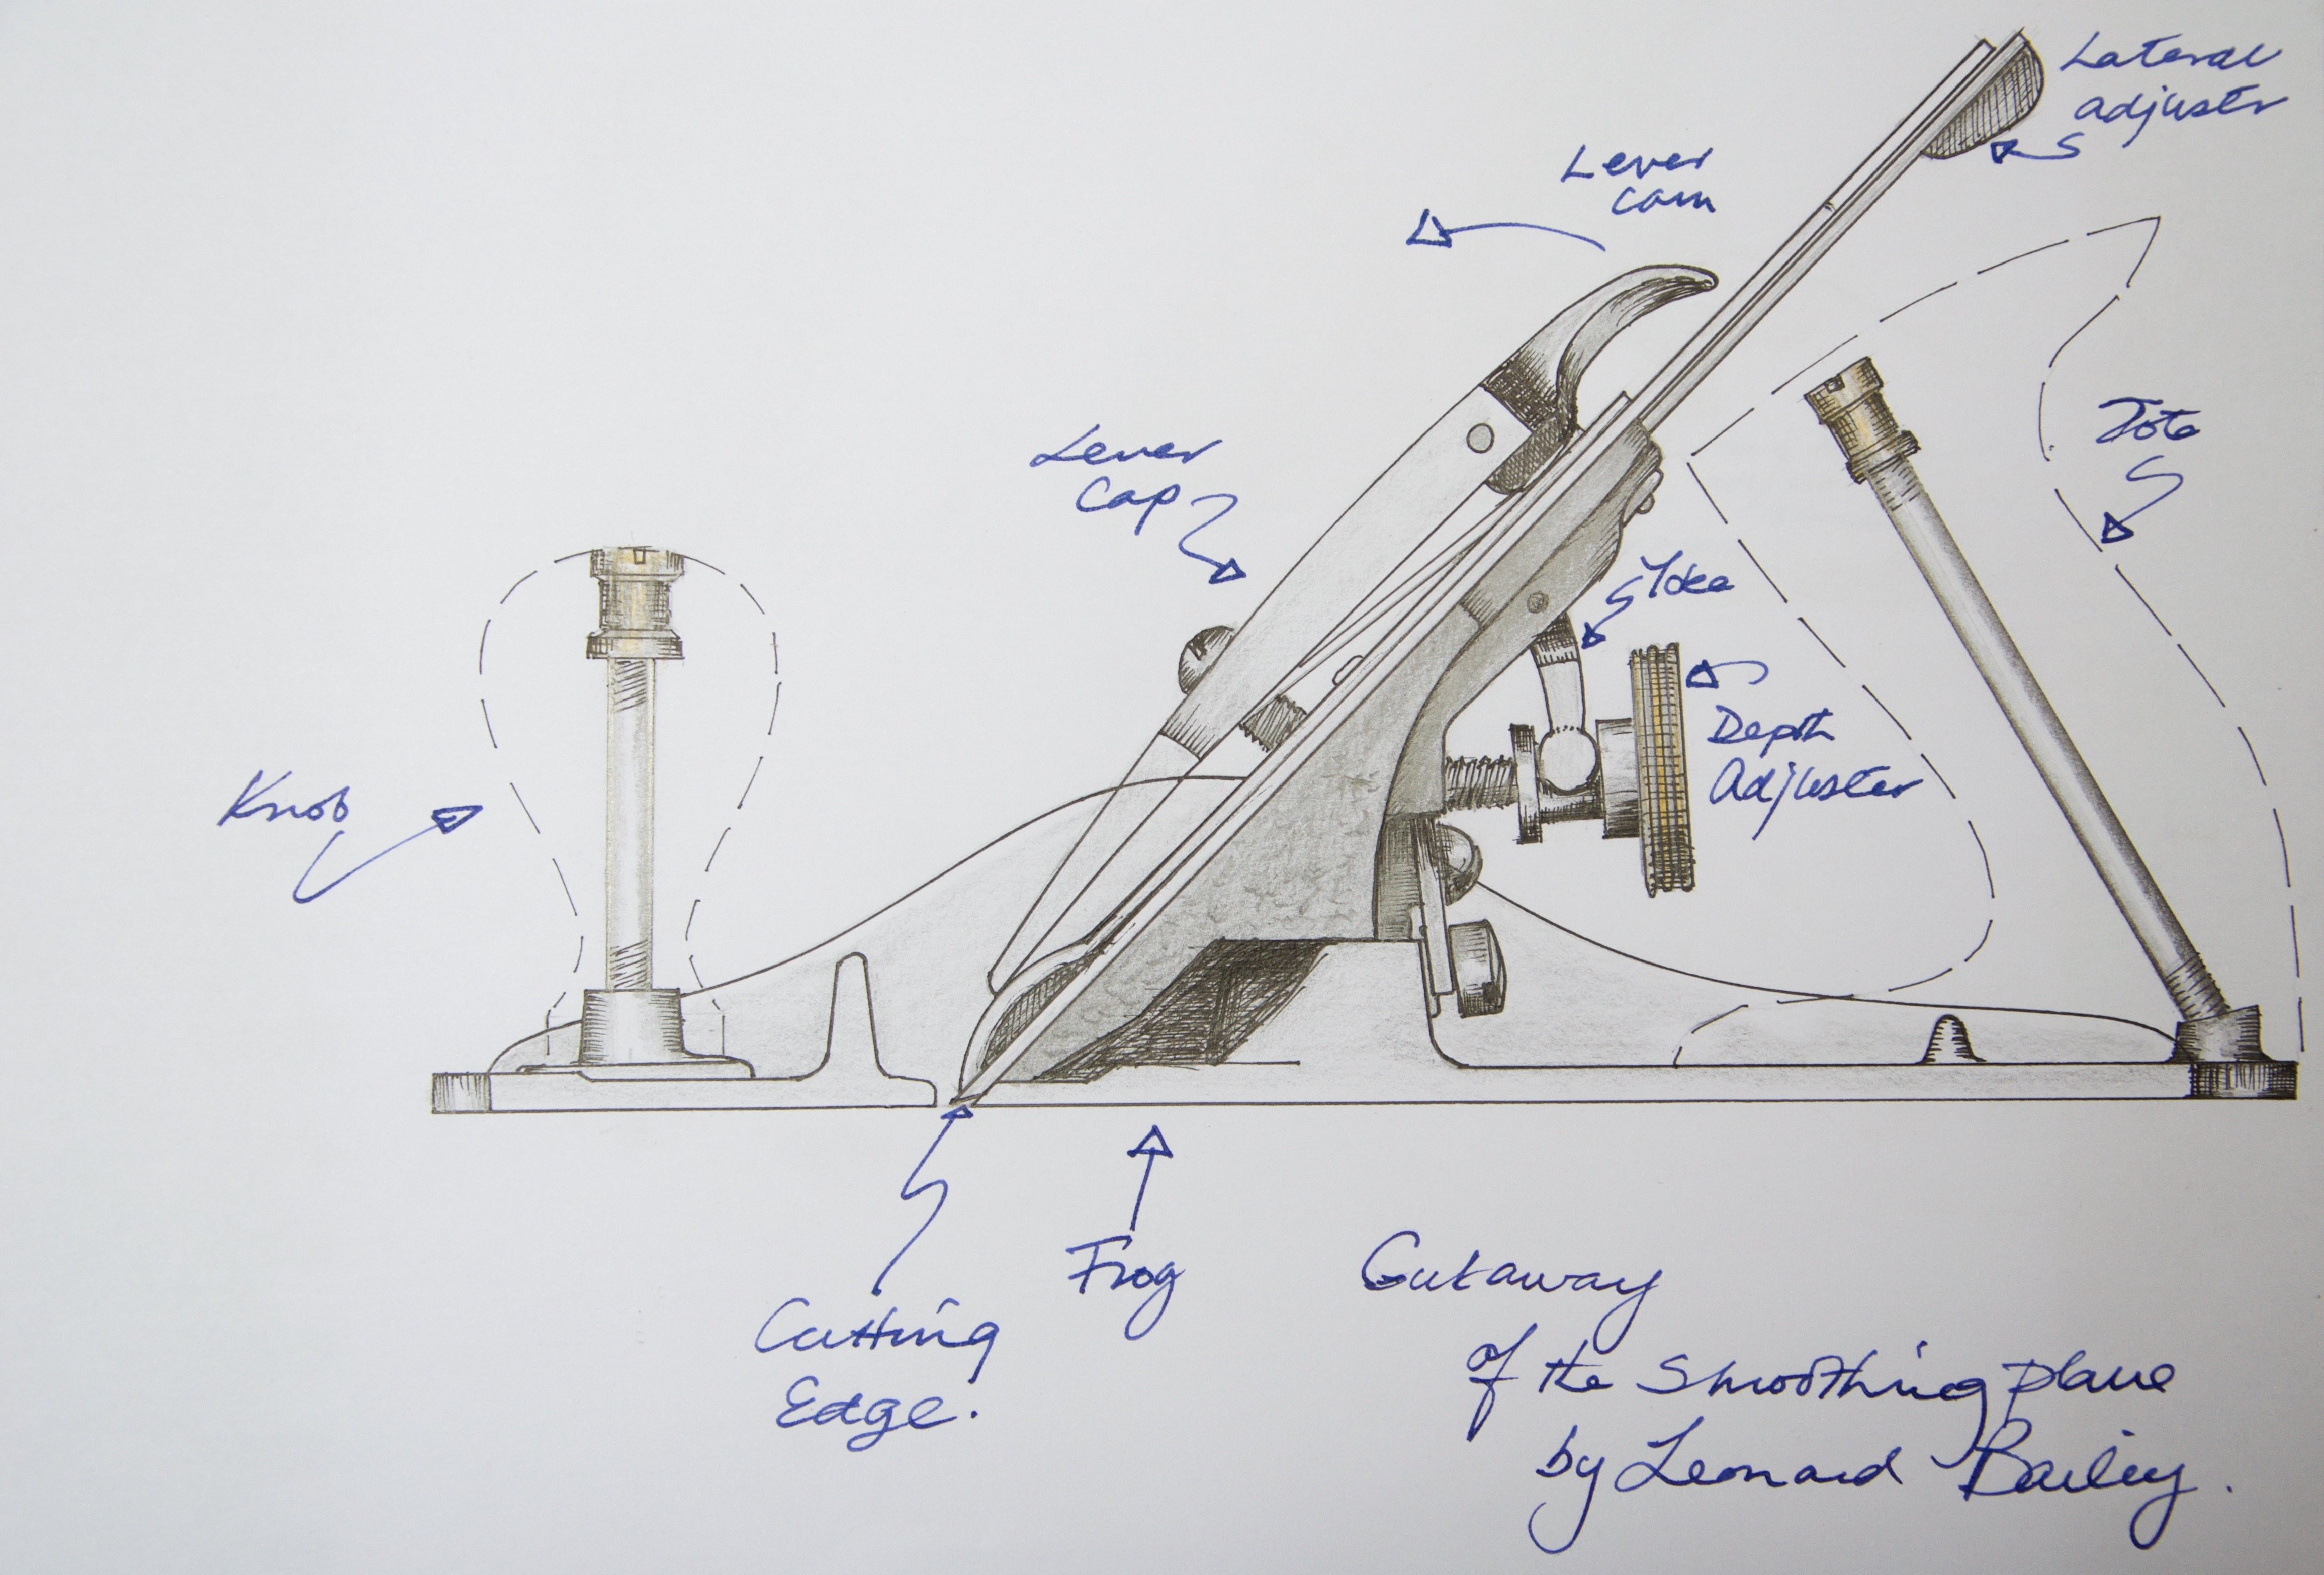 Lateral
adjuster
Lever
cam
Lever
Cap
Tote
Yoke
Depth
Adjuster
Knob
Cutting
Edge.
Frog
Cutaway
of the Smoothing plane
by Leonard Bailey.